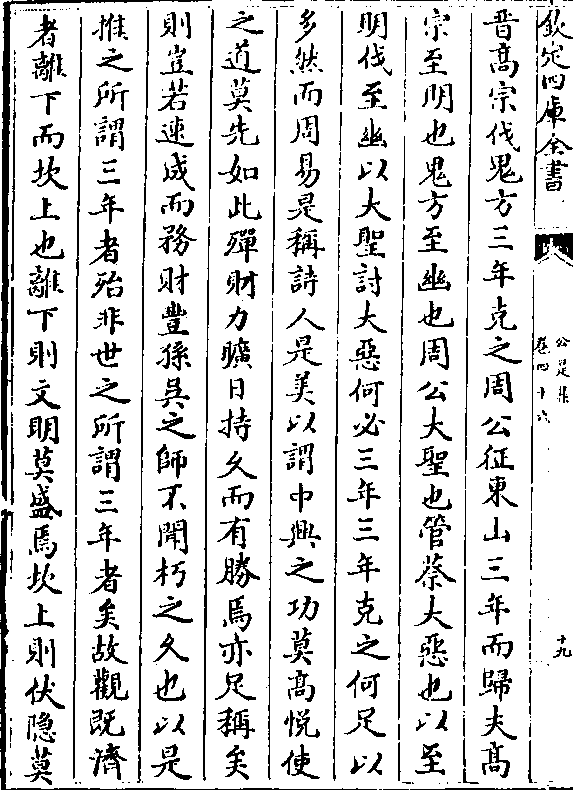 欽定四庫全書
公是集
卷四十六
十九
昔髙宗伐鬼方三年克之周公征東山三年而歸夫髙
宗至明也鬼方至幽也周公大聖也管蔡大惡也以至
明伐至幽以大聖討大惡何必三年三年克之何足以
多然而周易是稱詩人是美以謂中興之功莫髙恱使
之道莫先如此殫財力曠日持久而有勝焉亦足稱矣
則豈若速成而務財豐孫吳之師不聞朽之久也以是
推之所謂三年者殆非世之所謂三年者矣故觀既濟
者離下而坎上也離下則文明莫盛焉坎上則伏隐莫